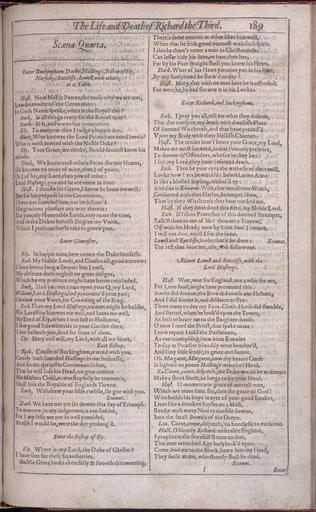 The Life and Death of Richard the Third. 189
Scæna Quarta.
Enter Buckingham, Darby, Hastings, Bishop of Ely,
Norfolke, Ratcliffe, Lovell, with others,
at a Table.
Hast. Now Noble Peeres, the cause why we are met,
Is to determine of the Coronation:
In Gods Name speake, when is the Royall day?
Buck. Is all things ready for the Royall time?
Darb. It is, and wants but nomination.
Ely. To morrow then I iudge a happy day.
Buck. Who knowes the Lord Protectors mind herein?
Who is most inward with the Noble Duke?
Ely. Your Grace, we thinke, should soonest know his
minde.
Buck. We know each others Faces: for our Hearts,
He knowes no more of mine, then I of yours,
Or I of his, my Lord, then you of mine:
Lord Hastings, you and he are neere in loue.
Hast. I thanke his Grace, I know he loues me well:
But for his purpose in the Coronation,
I haue not sounded him, nor he deliuer'd
His gracious pleasure any way therein:
But you, my Honorable Lords, may name the time,
And in the Dukes behalfe Ile giue my Voice,
Which I presume hee'le take in gentle part.
Enter Gloucester.
Ely. In happie time, here comes the Duke himselfe.
Rich. My Noble Lords, and Cousins all, good morrow:
I haue beene long a sleeper: but I trust,
My absence doth neglect no great designe,
Which by my presence might haue beene concluded.
Buck. Had you not come vpon your Q my Lord,
William, Lord Hastings, had pronounc'd your part;
I meane your Voice, for Crowning of the King.
Rich. Then my Lord Hastings, no man might be bolder,
His Lordship knowes me well, and loues me well.
My Lord of Ely, when I was last in Holborne,
I saw good Strawberries in your Garden there,
I doe beseech you, send for some of them.
Ely. Mary and will, my Lord, with all my heart.
Exit Bishop.
Rich. Cousin of Buckingham, a word with you.
Catesby hath sounded Hastings in our businesse,
And findes the testie Gentleman so hot,
That he will lose his Head, ere giue consent
His Masters Child, as worshipfully he tearmes it,
Shall lose the Royaltie of Englands Throne.
Buck. Withdraw your selfe a while, Ile goe with you.
Exeunt.
Darb. We haue not yet set downe this day of Triumph:
To morrow, in my iudgement, is too sudden,
For I my selfe am not so well prouided,
As else I would be, were the day prolong'd.
Enter the Bishop of Ely.
Ely. Where is my Lord, the Duke of Gloster?
I haue sent for these Strawberries.
Ha. His Grace looks chearfully & smooth this morning,
There's some conceit or other likes him well,
When that he bids good morrow with such spirit.
I thinke there's neuer a man in Christendome
Can lesser hide his loue, or hate, then hee,
For by his Face straight shall you know his Heart.
Darb. What of his Heart perceiue you in his Face,
By any liuelyhood he shew'd to day?
Hast. Mary, that with no man here he is offended:
For were he, he had shewne it in his Lookes.
Enter Richard, and Buckingham.
Rich. I pray you all, tell me what they deserue,
That doe conspire my death with diuellish Plots
Of damned Witchcraft, and that haue preuail'd
Vpon my Body with their Hellish Charmes.
Hast. The tender loue I beare your Grace, my Lord,
Makes me most forward, in this Princely presence,
To doome th'Offendors, whosoe're they be:
I say, my Lord, they haue deserued death.
Rich. Then be your eyes the witnesse of their euill.
Looke how I am bewitch'd: behold, mine Arme
Is like a blasted Sapling, wither'd vp:
And this is Edwards Wife, that monstrous Witch,
Consorted with that Harlot, Strumpet Shore,
That by their Witchcraft thus haue marked me.
Hast. If they haue done this deed, my Noble Lord.
Rich. If? thou Protector of this damned Strumpet,
Talk'st thou to me of Ifs: thou art a Traytor,
Off with his Head; now by Saint Paul I sweare,
I will not dine, vntill I see the same.
Louell and Ratcliffe, looke that it be done: Exeunt.
The rest that loue me, rise, and follow me.
Manet Louell and Ratcliffe, with the
Lord Hastings.
Hast. Woe, woe for England, not a whit for me,
For I, too fond, might haue preuented this:
Stanley did dreame, the Bore did rowse our Helmes,
And I did scorne it, and disdaine to flye:
Three times to day my Foot-Cloth-Horse did stumble,
And started, when he look'd vpon the Tower,
As loth to beare me to the slaughter-house.
O now I need the Priest, that spake to me:
I now repent I told the Pursuiuant,
As too triumphing, how mine Enemies
To day at Pomfret bloodily were butcher'd,
And I my selfe secure, in grace and fauour.
Oh Margaret, Margaret, now thy heauie Curse
Is lighted on poore Hastings wretched Head.
Ra. Come, come, dispatch, the Duke would be at dinner:
Make a short Shrift, he longs to see your Head.
Hast. O momentarie grace of mortall men,
Which we more hunt for, then the grace of God!
Who builds his hope in ayre of your good Lookes,
Liues like a drunken Sayler on a Mast,
Readie with euery Nod to tumble downe,
Into the fatall Bowels of the Deepe.
Lou. Come, come, dispatch, 'tis bootlesse to exclaime.
Hast. O bloody Richard: miserable England,
I prophecie the fearefull'st time to thee,
That euer wretched Age hath look'd vpon.
Come, lead me to the Block, beare him my Head,
They smile at me, who shortly shall be dead.
Exeunt.
Enter